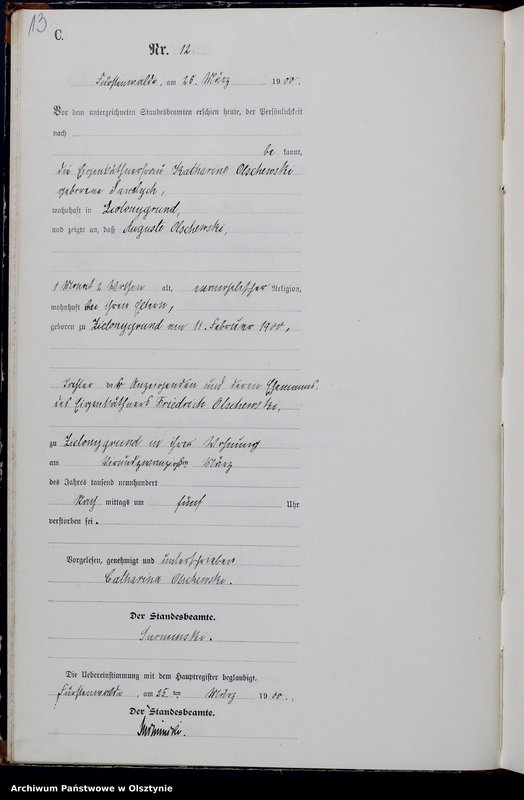 13
C.
Nr. 12.
Fürstenwalde, am 25. März 1900.
Vor dem unterzeichneten Standesbeamten erschien heute, der Persönlichkeit
nach
be kannt,
die Eigenkäthnerfrau Katharine Olschewski
geborene
wohnhaft in Zielonygrund,
und zeigte an, daß Auguste Olschewski,
1 Monat 2 Wochen alt, evangelischer Religion,
wohnhaft bei ihren Eltern,
geboren zu Zielonygrund am 11. Februar 1900,
Tochter der Anzeigenden und deren Ehemanns
des Eigenkäthners Friedrich Olschewski,
zu Zielonygrund in ihrer Wohnung
am vierundzwanzigsten März
des Jahres tausend neunhundert
Nach mittags um fünf Uhr
verstorben sei.
Vorgelesen, genehmigt und unterschrieben
Catharina Olschewski.
Der Standesbeamte.
Die Uebereinstimmung mit dem Hauptregister beglaubigt.
Fürstenwalde, am 25. ten März 1900.
Der Standesbeamte.
Archiwum Państwowe w Olsztynie